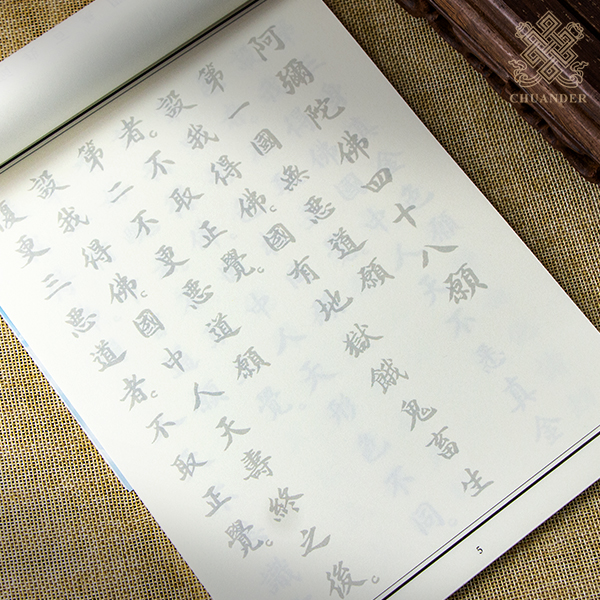 阿彌陀佛四十八願
第一國無惡道願
設我得佛。國有地獄餓鬼畜生
者。不取正覺。
第二不更惡道願
設我得佛。國中人天壽終之後。
復更三惡道者。不取正覺。
5
CHUANDER